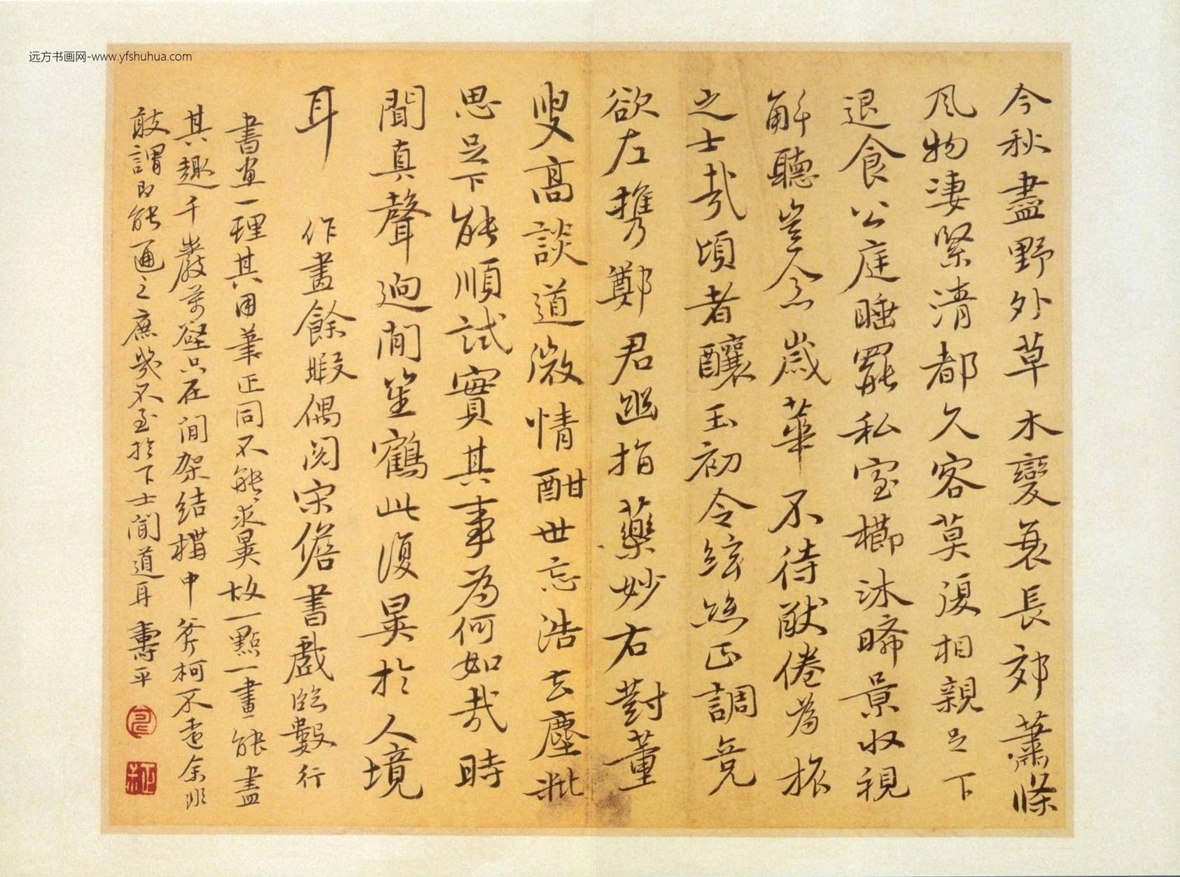 远方书画网-www.yfshuhua.com
今秋盡野外草木變衰長郊蕭條
風物凄緊清都久客莫復相親足下
退食公庭睡罷私室櫛沐晞景收視
解聽豈念歲華不待猒倦為旅
之士哉頃者釀玉初令絃絲正調竟
欲左携鄭君幽指藥妙右對董
叟高談道微情酣世忘浩去塵粃
思足下能順試實其事為何如哉時
聞真聲迥閒笙鶴此復異於人境
耳
作畫餘暇偶閱宋儋書戲臨數行
書畫一理其用筆正同不能求異故一點一畫能盡
其趣千巖萬壑只在間架結構中斧柯不遠余非
敢謂即能通之庶幾不至於下士聞道耳 壽平